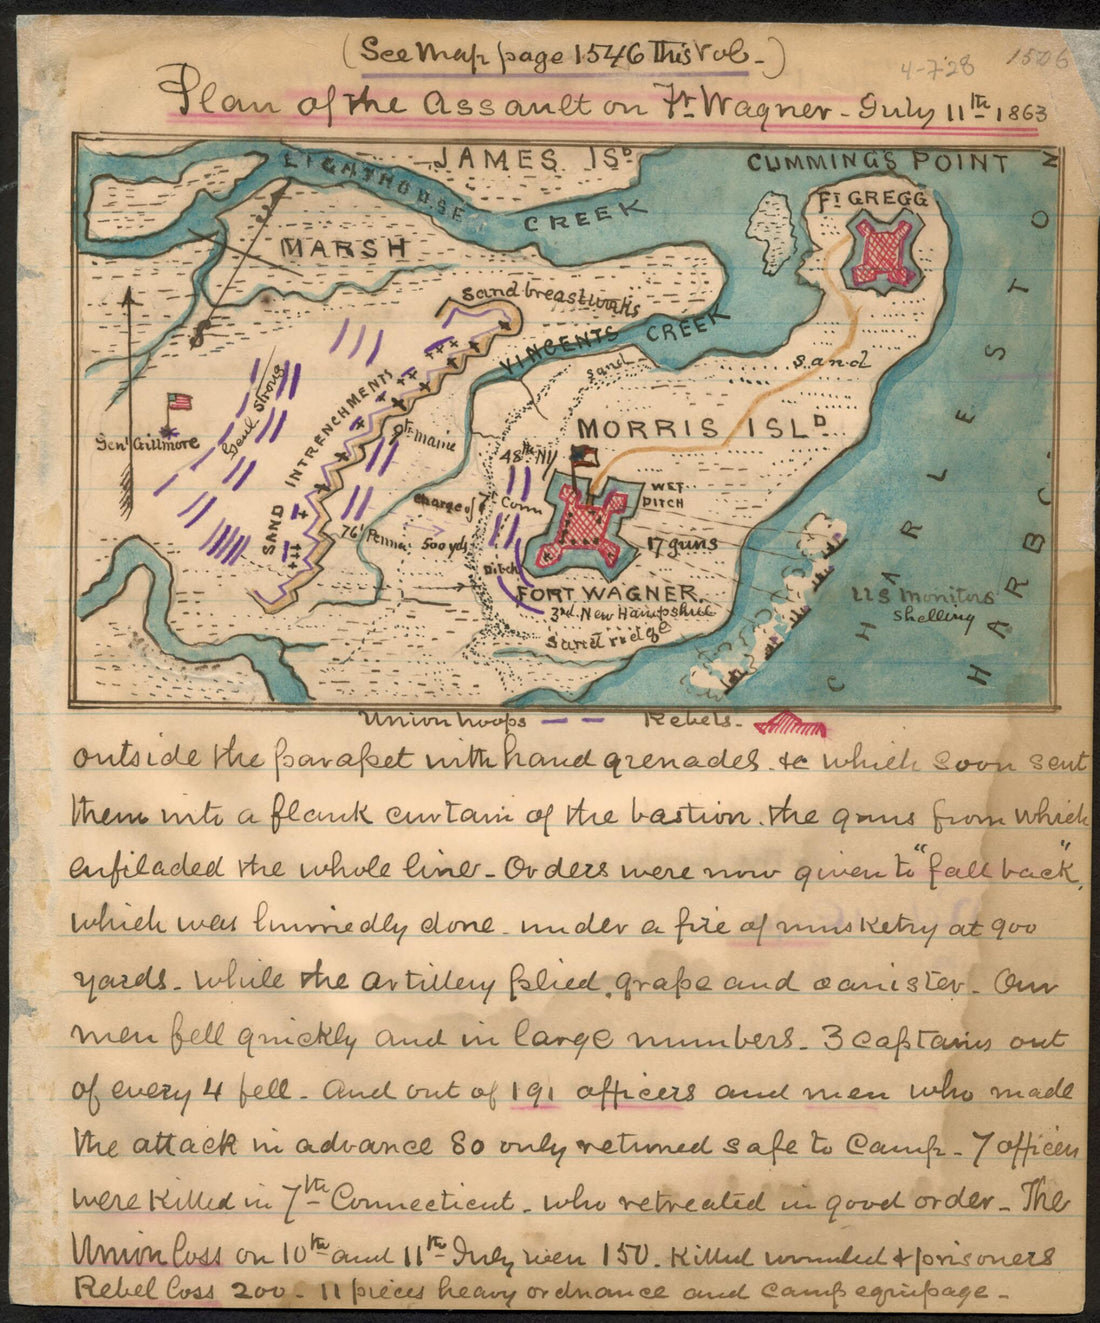 (See Map page 1546 This Vol-)
4-7-28
1506
Plan of the Assault on Ft Wagner - July 11th 1863
LIGHTHOUSE CREEK
JAMES ISD
CUMMINGS POINT
FT GREGG
MARSH
Sand breastworks
VINCENTS CREEK
sand
sand
CHARLESTON HARBOR
Genl Strong
Genl Gillmore
SAND INTRENCHMENTS
9th maine
MORRIS ISLD
48th NY
WET DITCH
charge of 7th Conn
76th Penna
500 yds
17 guns
Ditch
FORT WAGNER.
3rd New Hampshire
Sand ridge
US Monitors
shelling
Union troops
Rebels-
outside the parapet with hand grenades. &c which soon sent
them into a flank curtain of the bastion. the guns from which
enfiladed the whole line - Orders were now given to "fall back",
which was hurriedly done - under a fire of musketry at 900
yards - while the artillery plied, grape and canister - Our
men fell quickly and in large numbers - 3 captains out
of every 4 fell - And out of 191 officers and men who made
the attack in advance 80 only returned safe to Camp - 7 officers
were killed in 7th Connecticut - who retreated in good order - The
Union loss on 10th and 11th July were 150. Killed wounded & prisoners
Rebel loss 200 - 11 pieces heavy ordnance and camp equipage -